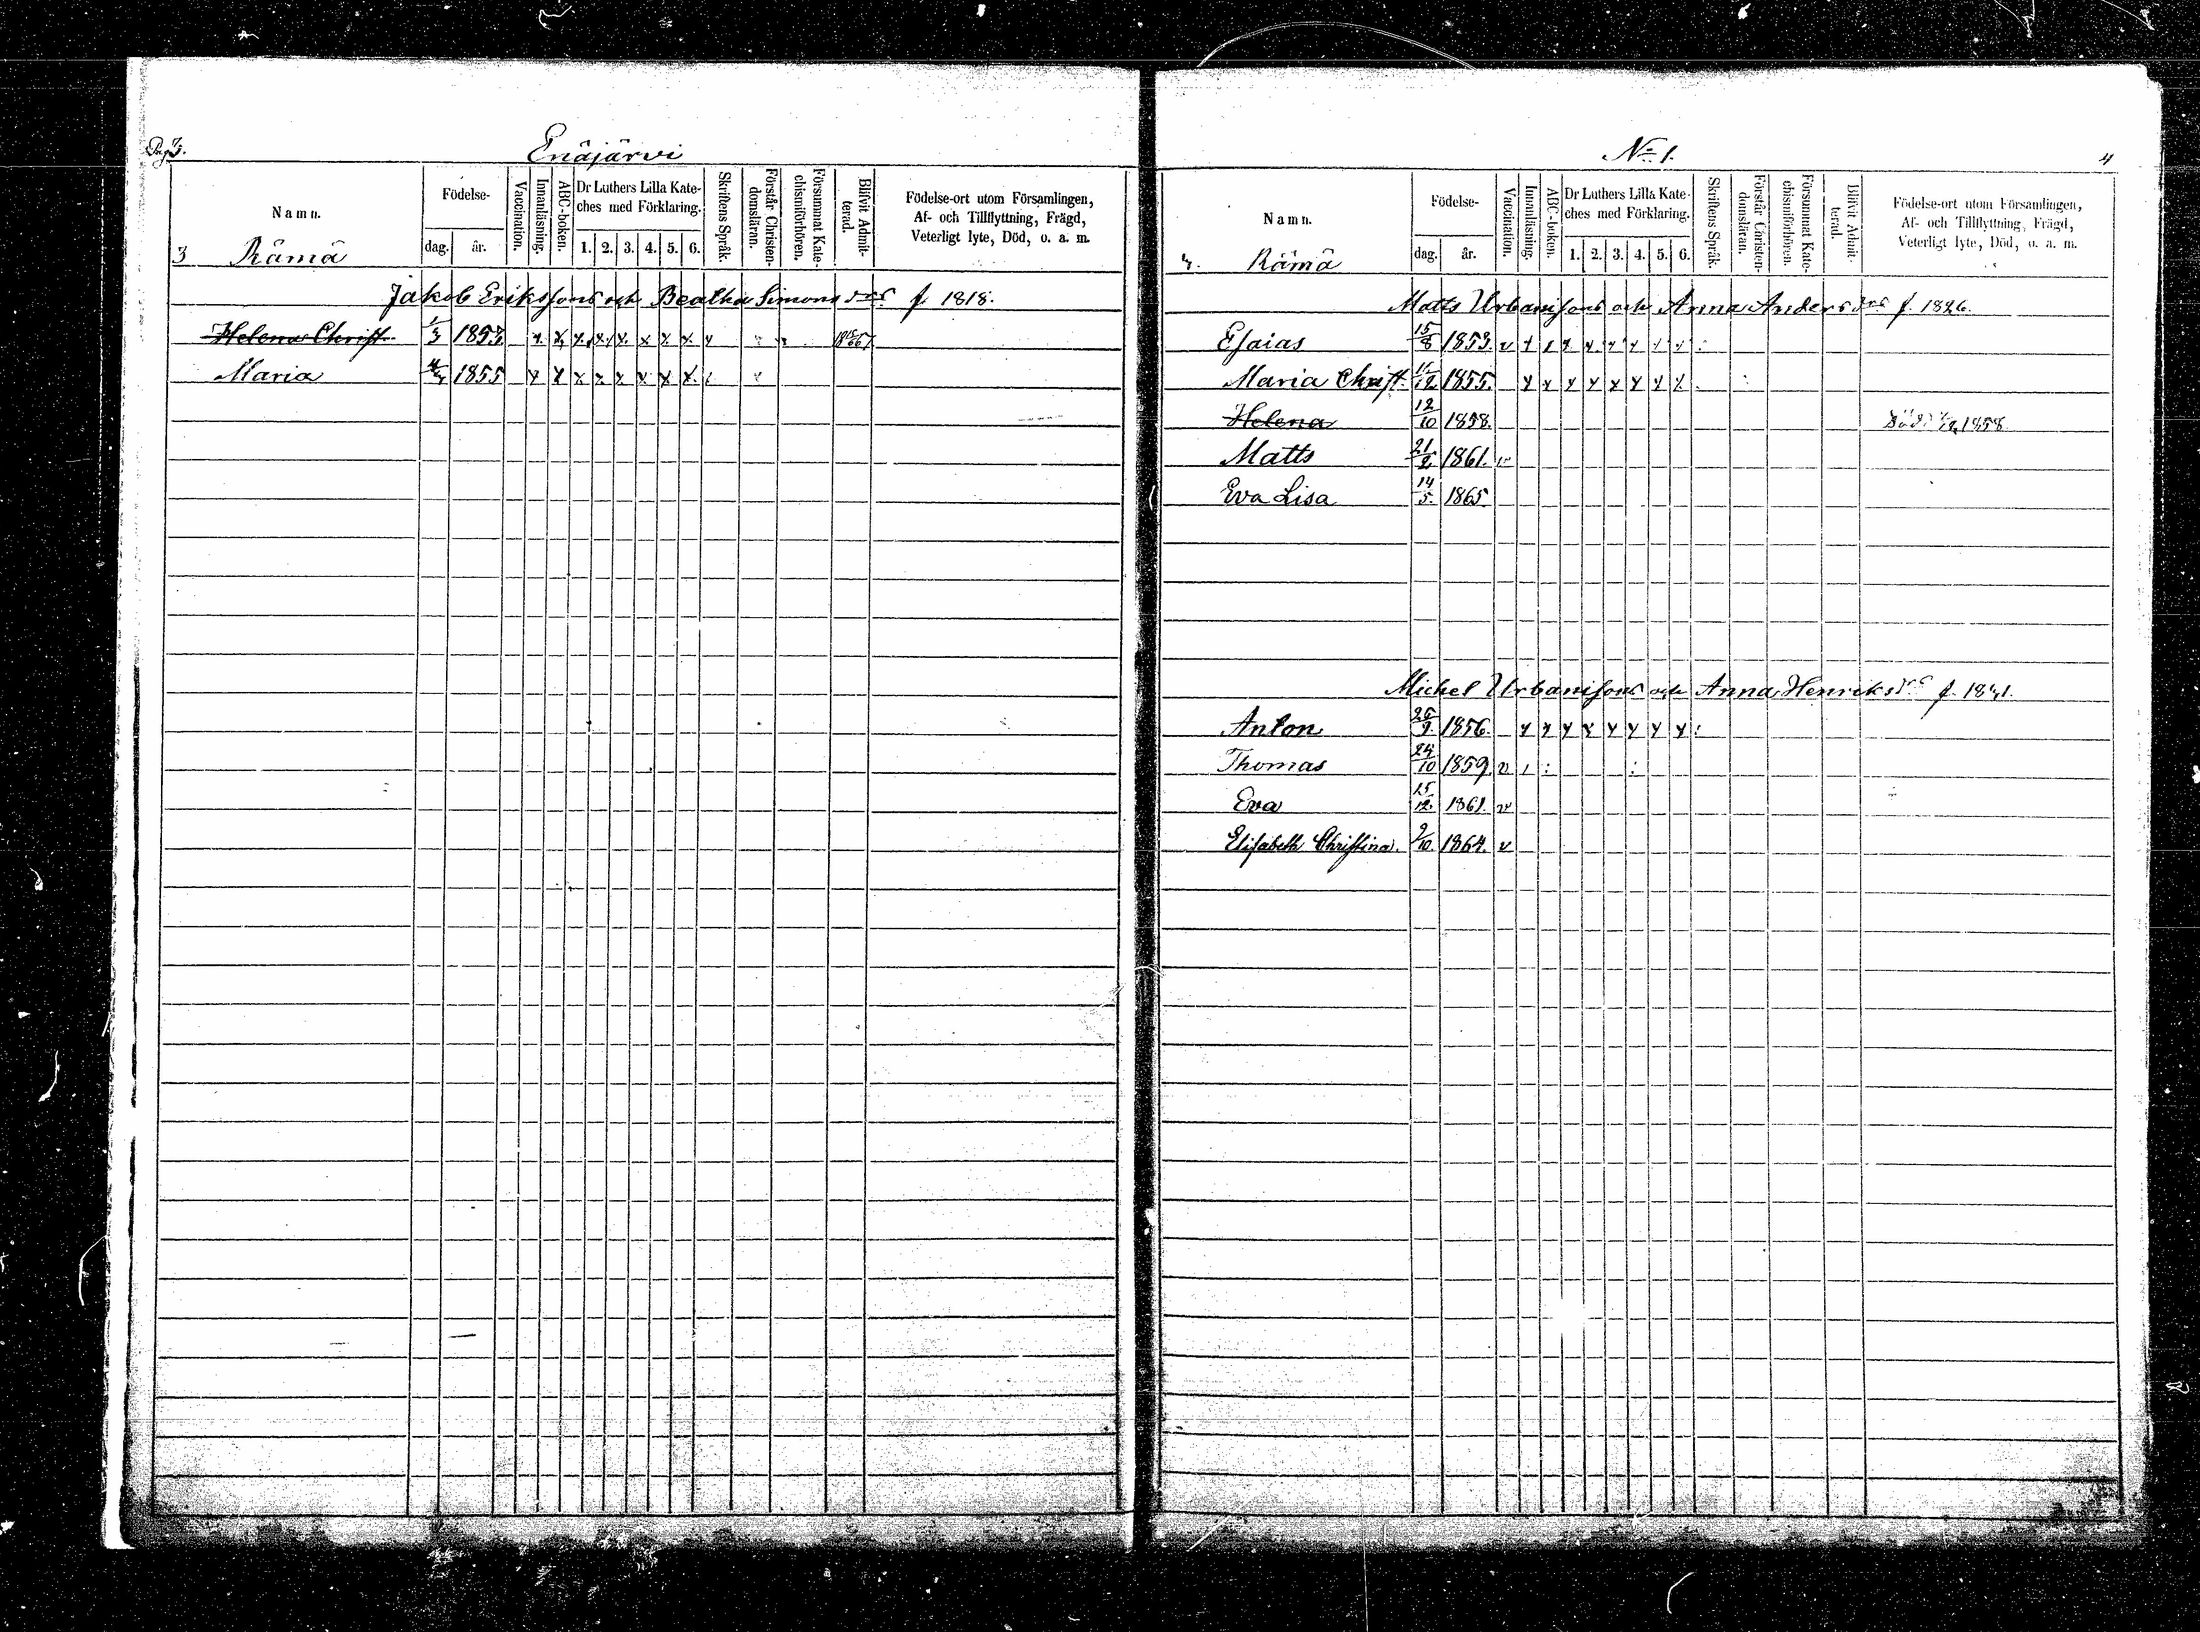 Pag. 3.
Enäjärvi
Namn.
Födelse-
dag. år.
Vaccination.
Innanläsning.
ABC-boken.
Dr Luthers Lilla Kate-
ches med Förklaring.
1. 2. 3. 4. 5. 6.
Skriftens Språk.
Förstår Christen-
domsläran.
Försummat Kate-
chismiförhören.
Blifvit Admit-
terad.
Födelse-ort utom Församlingen,
Af- och Tillflyttning, Frägd,
Veterligt lyte, Död, o. a. m.
3 Rämä
Jakob Erikssons och Beatha Simonsdrs f. 1818.
Helena Christ. 1853 x x x x x x x x
Maria 1855 x x x x x x x x
No 1.
4
Namn.
Födelse-
dag. år.
Vaccination.
Innanläsning.
ABC-boken.
Dr Luthers Lilla Kate-
ches med Förklaring.
1. 2. 3. 4. 5. 6.
Skriftens Språk.
Förstår Christen-
domsläran.
Försummat Kate-
chismiförhören.
Blifvit Admit-
terad.
Födelse-ort utom Församlingen,
Af- och Tillflyttning, Frägd,
Veterligt lyte, Död, o. a. m.
4. Rämä
Matts Urbanssons och Anna Andersdrs f. 1826.
Esaias 15/8 1853. v x x x x x x x x
Maria Christ. 1855. x x x x x x x x
Helena 12/10 1858. Död 1858
Matts 21/2 1861. v
Eva Lisa 14/5. 1865.
Michel Urbanssons och Anna Henriksdrs f.
Anton 1856. x x x x x x x x
Thomas 24/10 1859. v
Eva 15/12. 1861. v
Elisabeth Christina. 9/10 1864. v